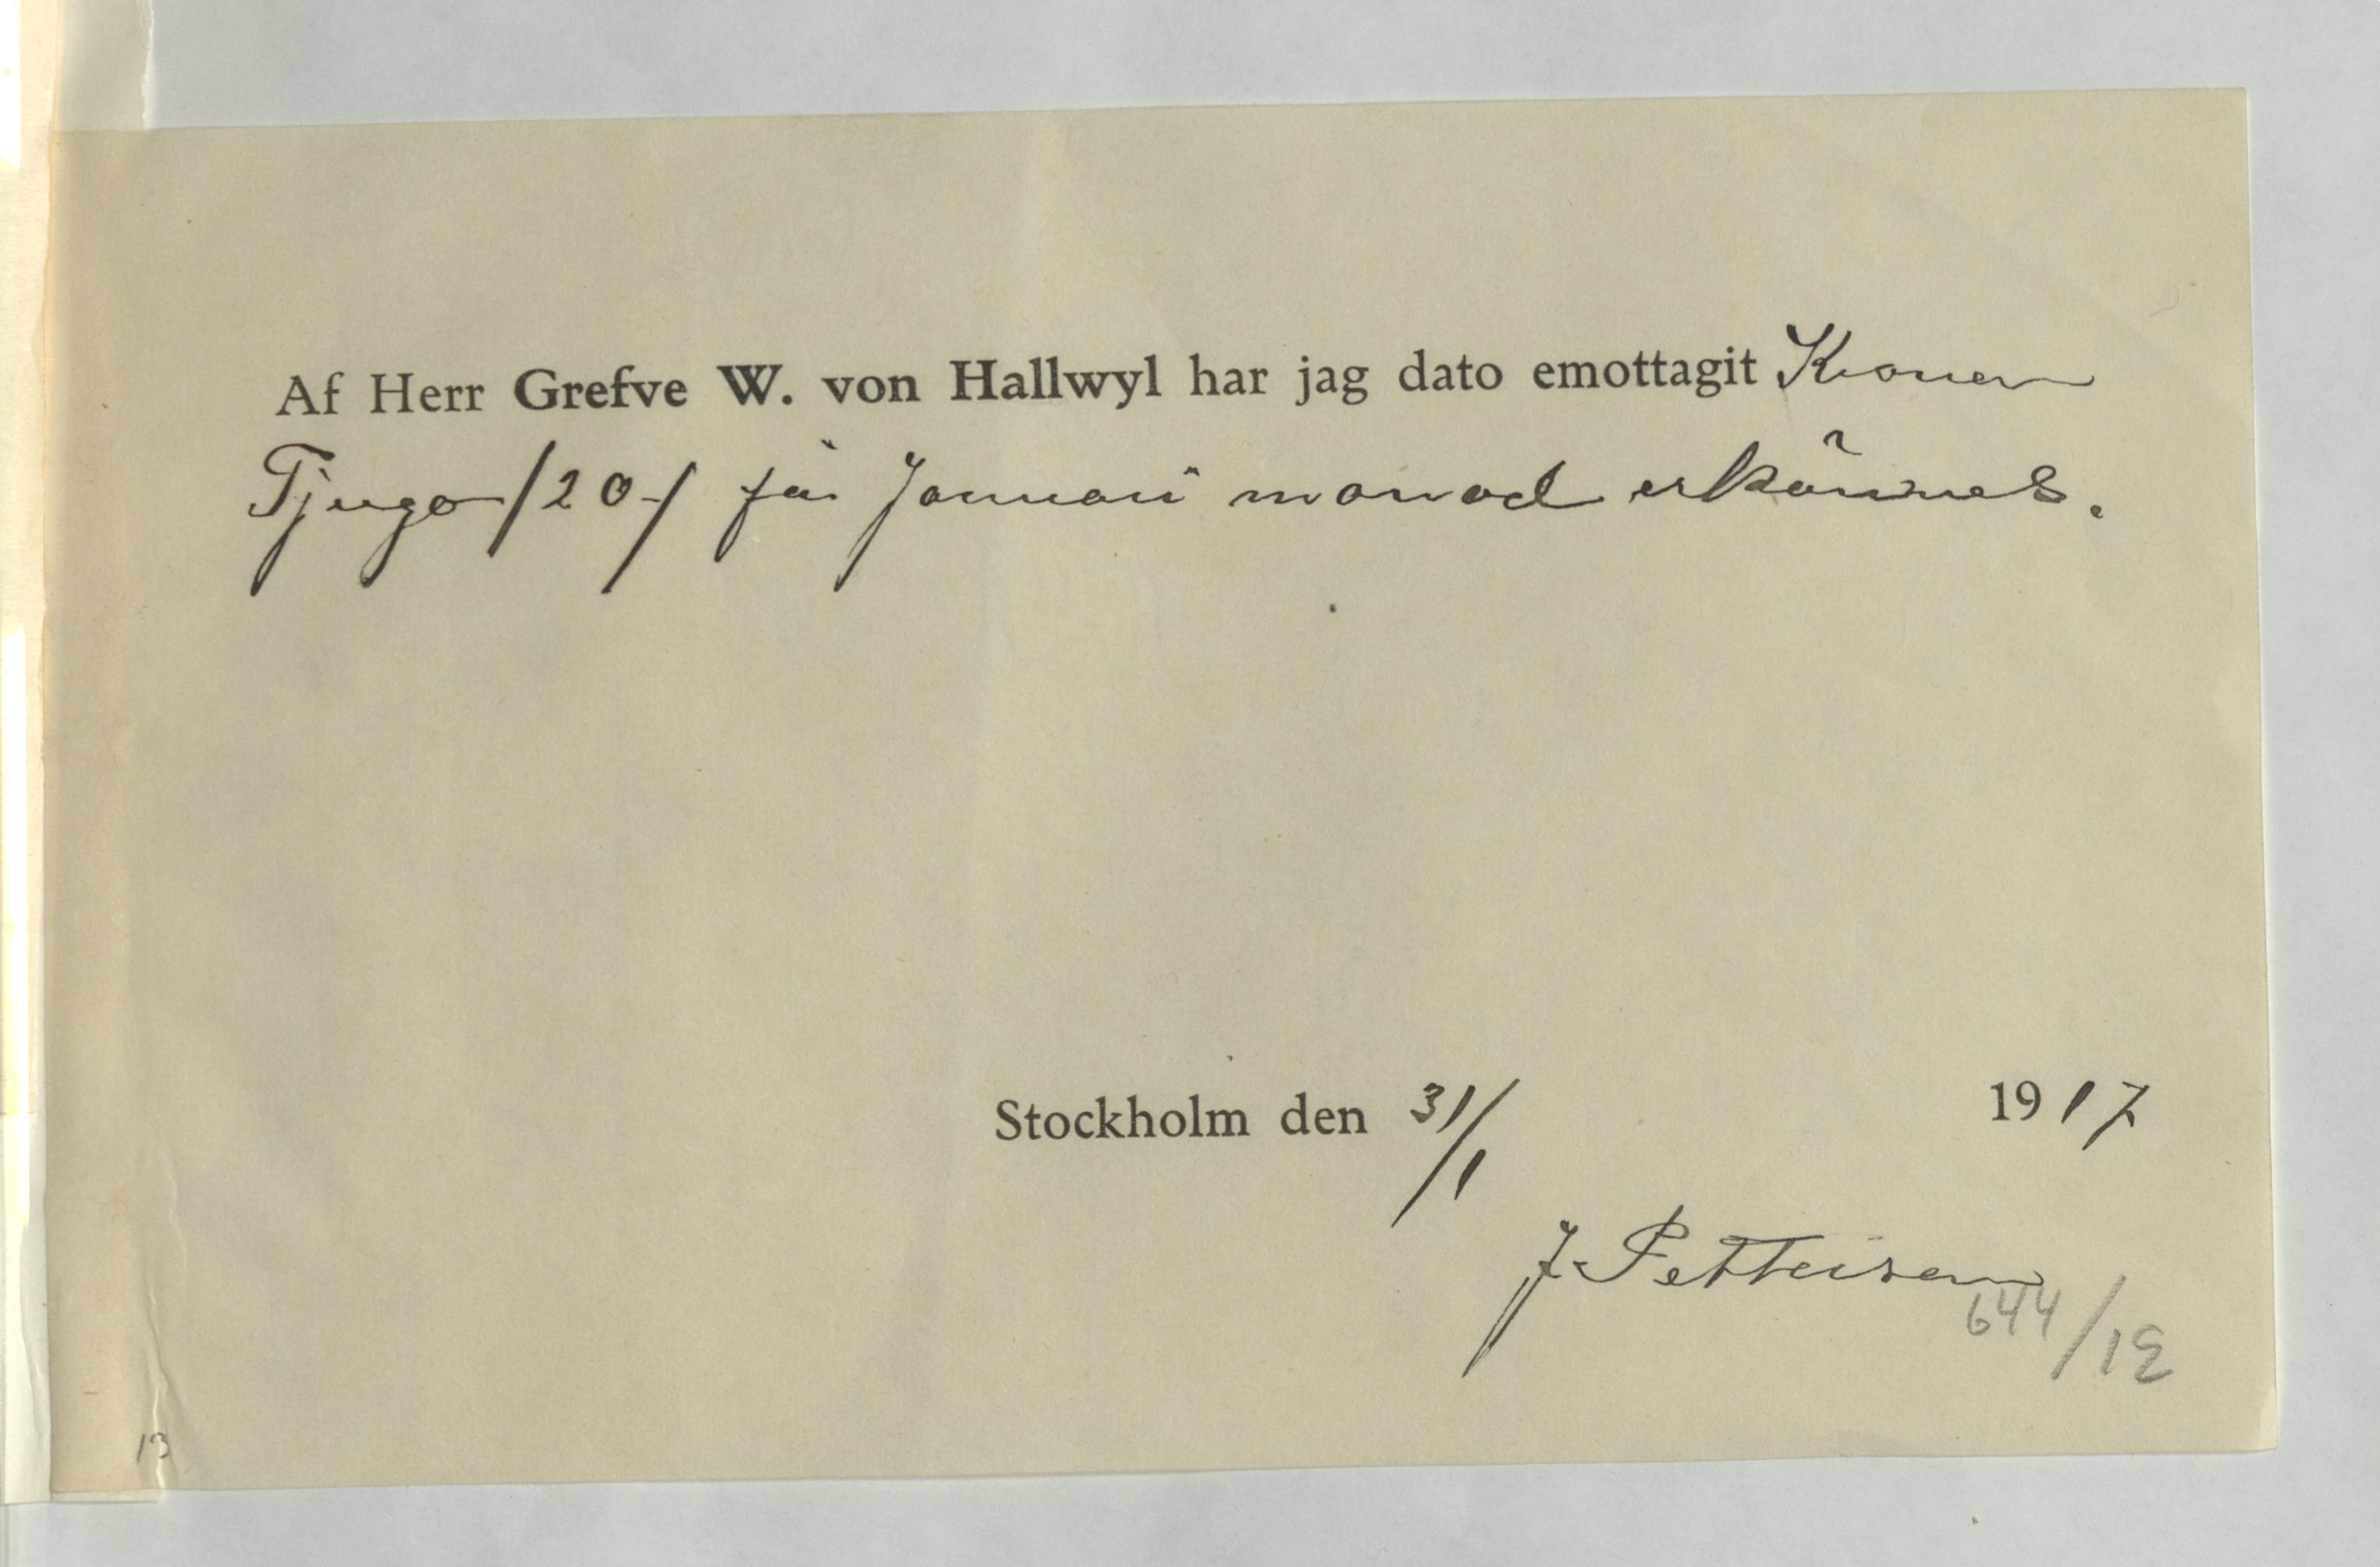 Af Herr Grefve W. von Hallwyl har jag dato emottagit Kronor
Tjugo /20-/ för Januari månad erkännes.
Stockholm den 31/1 1917
J. Petterson
644/12
13